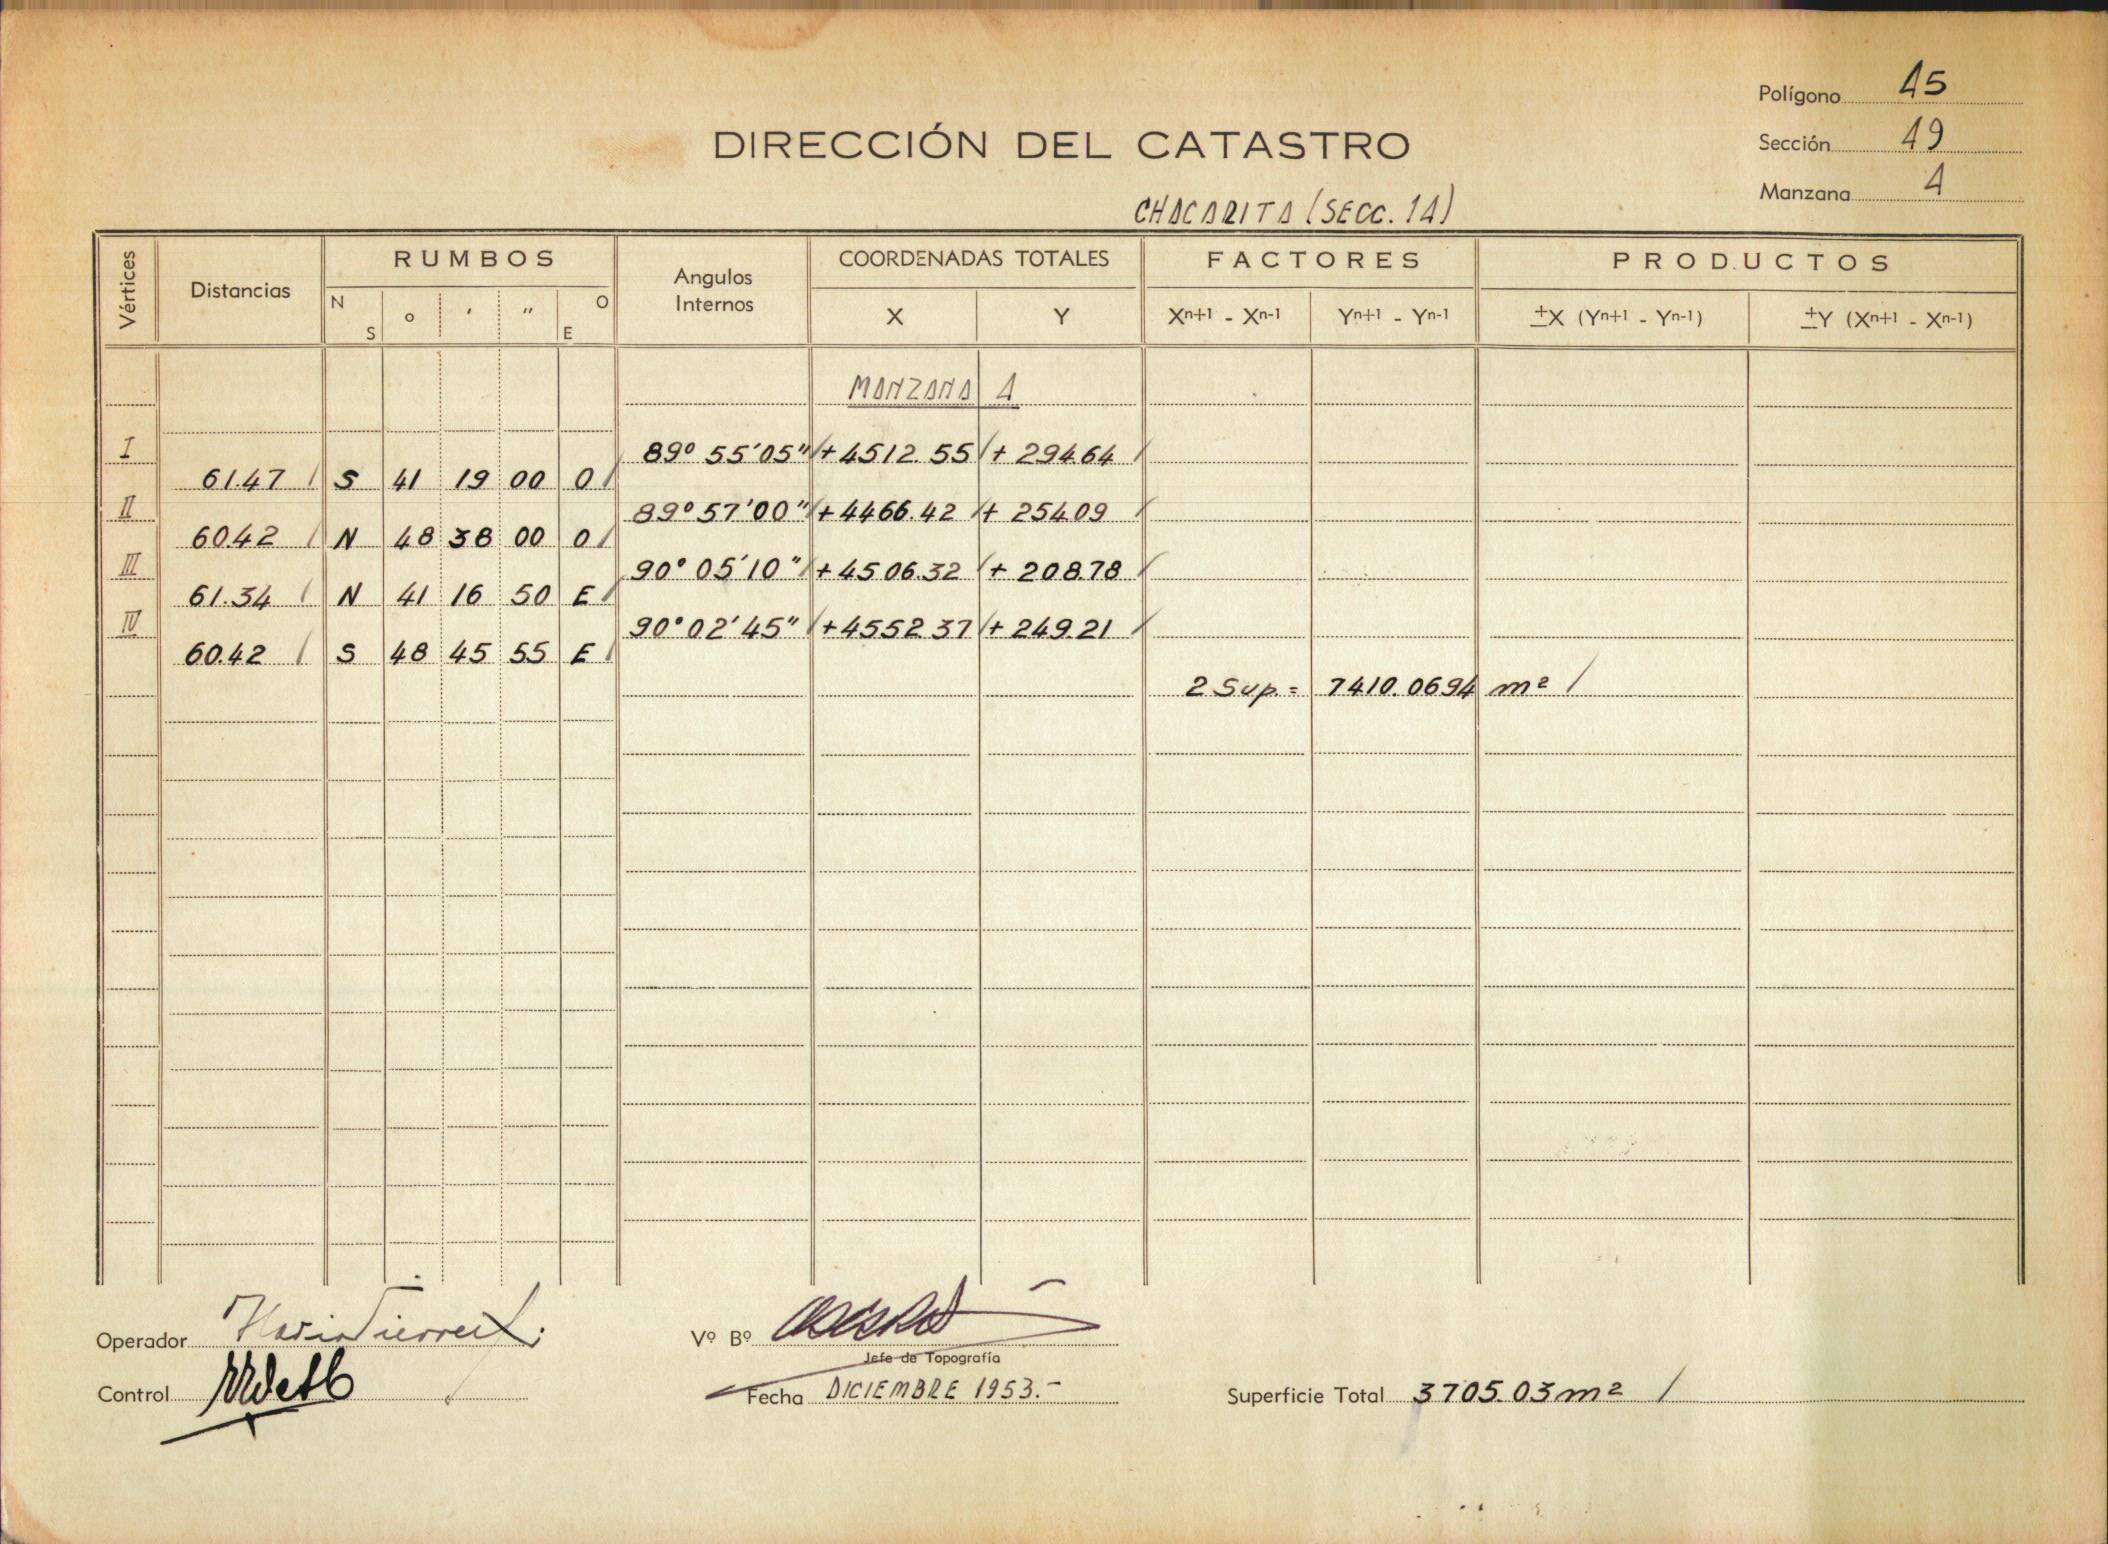 Polígono 45
DIRECCIÓN DEL CATASTRO
Sección 49
Manzana 4
CHACARITA (SECC. 14)
Vértices Distancias RUMBOS Angulos Internos COORDENADAS TOTALES FACTORES PRODUCTOS
N S o ' " O E X Y Xn+1 - Xn-1 Yn+1 - Yn-1 ±X (Yn+1 - Yn-1) ±Y (Xn+1 - Xn-1)
MANZANA 4
I 89° 55' 05" + 4512.55 + 294.64
61.47 S 41 19 00 O
II 89° 57' 00" + 4466.42 + 254.09
60.42 N 48 38 00 O
III 90° 05' 10" + 4506.32 + 208.78
61.34 N 41 16 50 E
IV 90° 02' 45" + 4552.37 + 249.21
60.42 S 48 45 55 E
2 Sup. = 7410.0694 m²
Operador
Vº Bº
Jefe de Topografía
Control
Fecha DICIEMBRE 1953.-
Superficie Total 3705.03 m²